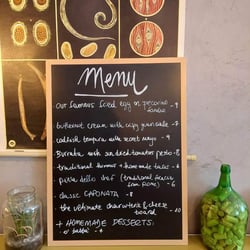 Menu
- our famous fried egg on pecorino
fondue - 9
- butternut cream with crispy guanciale - 7
- codfish tempura with secret mayo - 9
- Burrata with sun dried tomatoes pesto - 8
- traditional hummus + homemade - 6
- pizza dello chef (traditional focaccia
from Rome) - 6
- classic CAPONATA - 8
- the ultimate charcuterie & cheese
board - 20
+ HOMEMADE DESSERTS: